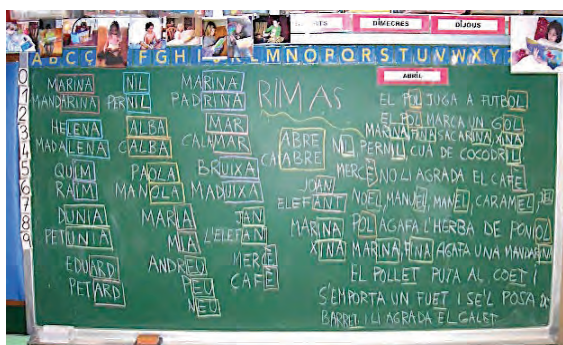 DIMECRES DIJOUS
A B C Ç F G H I L M N O P Q R S T U V W X Y
ABRIL
0
1
2
3
4
5
6
7
8
9
MARINA
MANDARINA
HELENA
MADALENA
QUIM
RAÏM
DUNIA
PETUNIA
EDUARD
PETARD
NIL
PERNIL
ALBA
CALBA
PAOLA
MANOLA
MARIA
MIA
ANDREU
PEU
NEU
MARINA
PADRINA
MAR
CALAMAR
BRUIXA
MADUIXA
JAN
L'ELEFAN
MERCÈ
CAFÈ
RIMAS
ABRE
CABRE
JOAN
ELEFANT
MARINA
XINA
EL POL JUGA A FUTBOL
EL POL MARCA UN GOL
MARINA FINA SACARINA, XINA
NIL PERNIL CUA DE COCODRIL
MERCÈ NO LI AGRADA EL CAFÈ
NOEL, MANUEL, MANEL, CARAMEL,
POL AGAFA L'HERBA DE PONIOL
MARINA, FINA AGAFA UNA MANDARINA
EL POLLET PUJA AL COET I
S'EMPORTA UN FUET I SE'L POSA DE
BARRET I LI AGRADA EL GALET